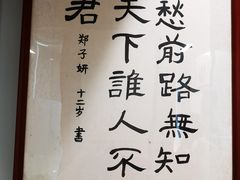 愁前路無知
天下誰人不
君
郑子妍 十二岁 書